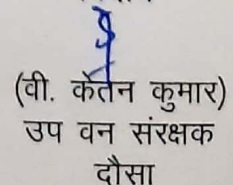 (वी. केतन कुमार)
उप वन संरक्षक
दौसा